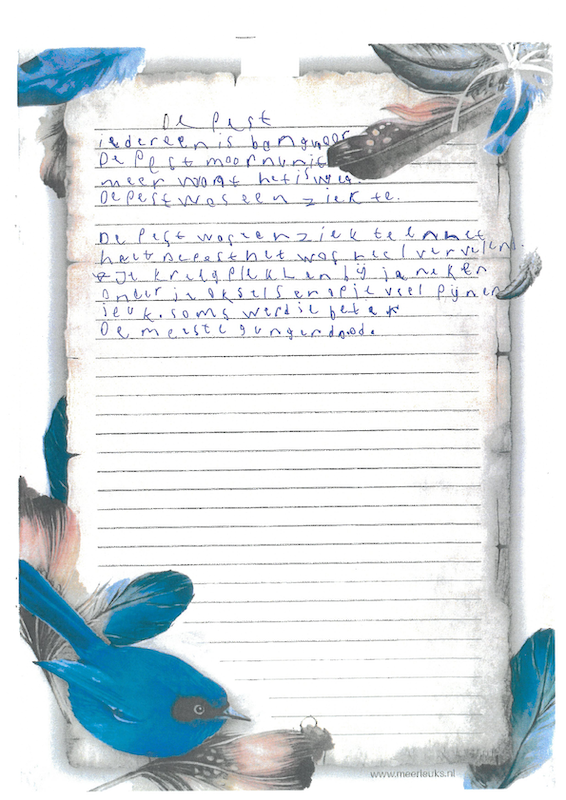 De Pest
iedereen is bang voor
De Pest maar nu niet
meer want het is weg.
De Pest was een ziekte.
De Pest was een ziekte en het
heette pest het was heel vervelend.
Je kreeg plekken bij je neken
onder je oksels en op je veel pijn en
jeuk. soms werd je beter
De meeste gingen dood.
www.meerleuks.nl